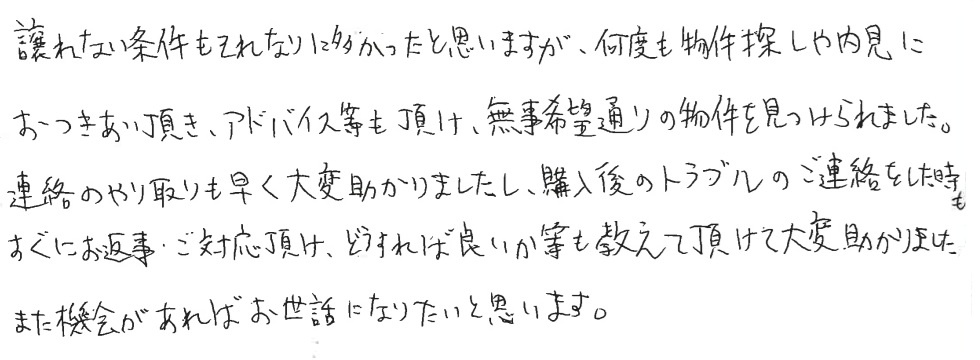 譲れない条件もそれなりに多かったと思いますが、何度も物件探しや内見に
おつきあい頂き、アドバイス等も頂け、無事希望通りの物件を見つけられました。
連絡のやり取りも早く大変助かりましたし、購入後のトラブルのご連絡をした時も
すぐにお返事・ご対応頂け、どうすれば良いか等も教えて頂けて大変助かりました
また機会があればお世話になりたいと思います。